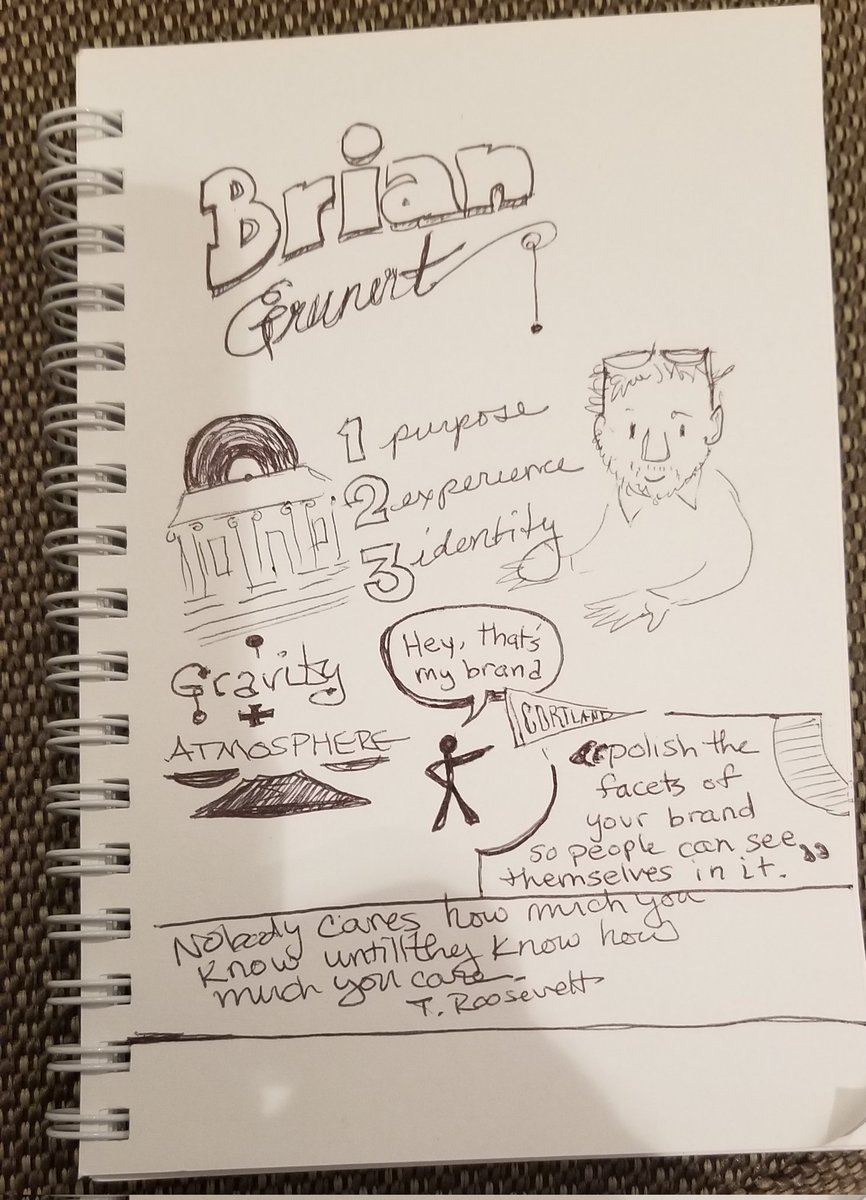 Brian
Grunert
1 purpose
2 experience
3 identity
Gravity
+
ATMOSPHERE
Hey, that's
my brand
CORTLAND
"polish the
facets of
your brand
so people can see
themselves in it."
Nobody cares how much you
know untill they know how
much you care.
T. Roosevelt